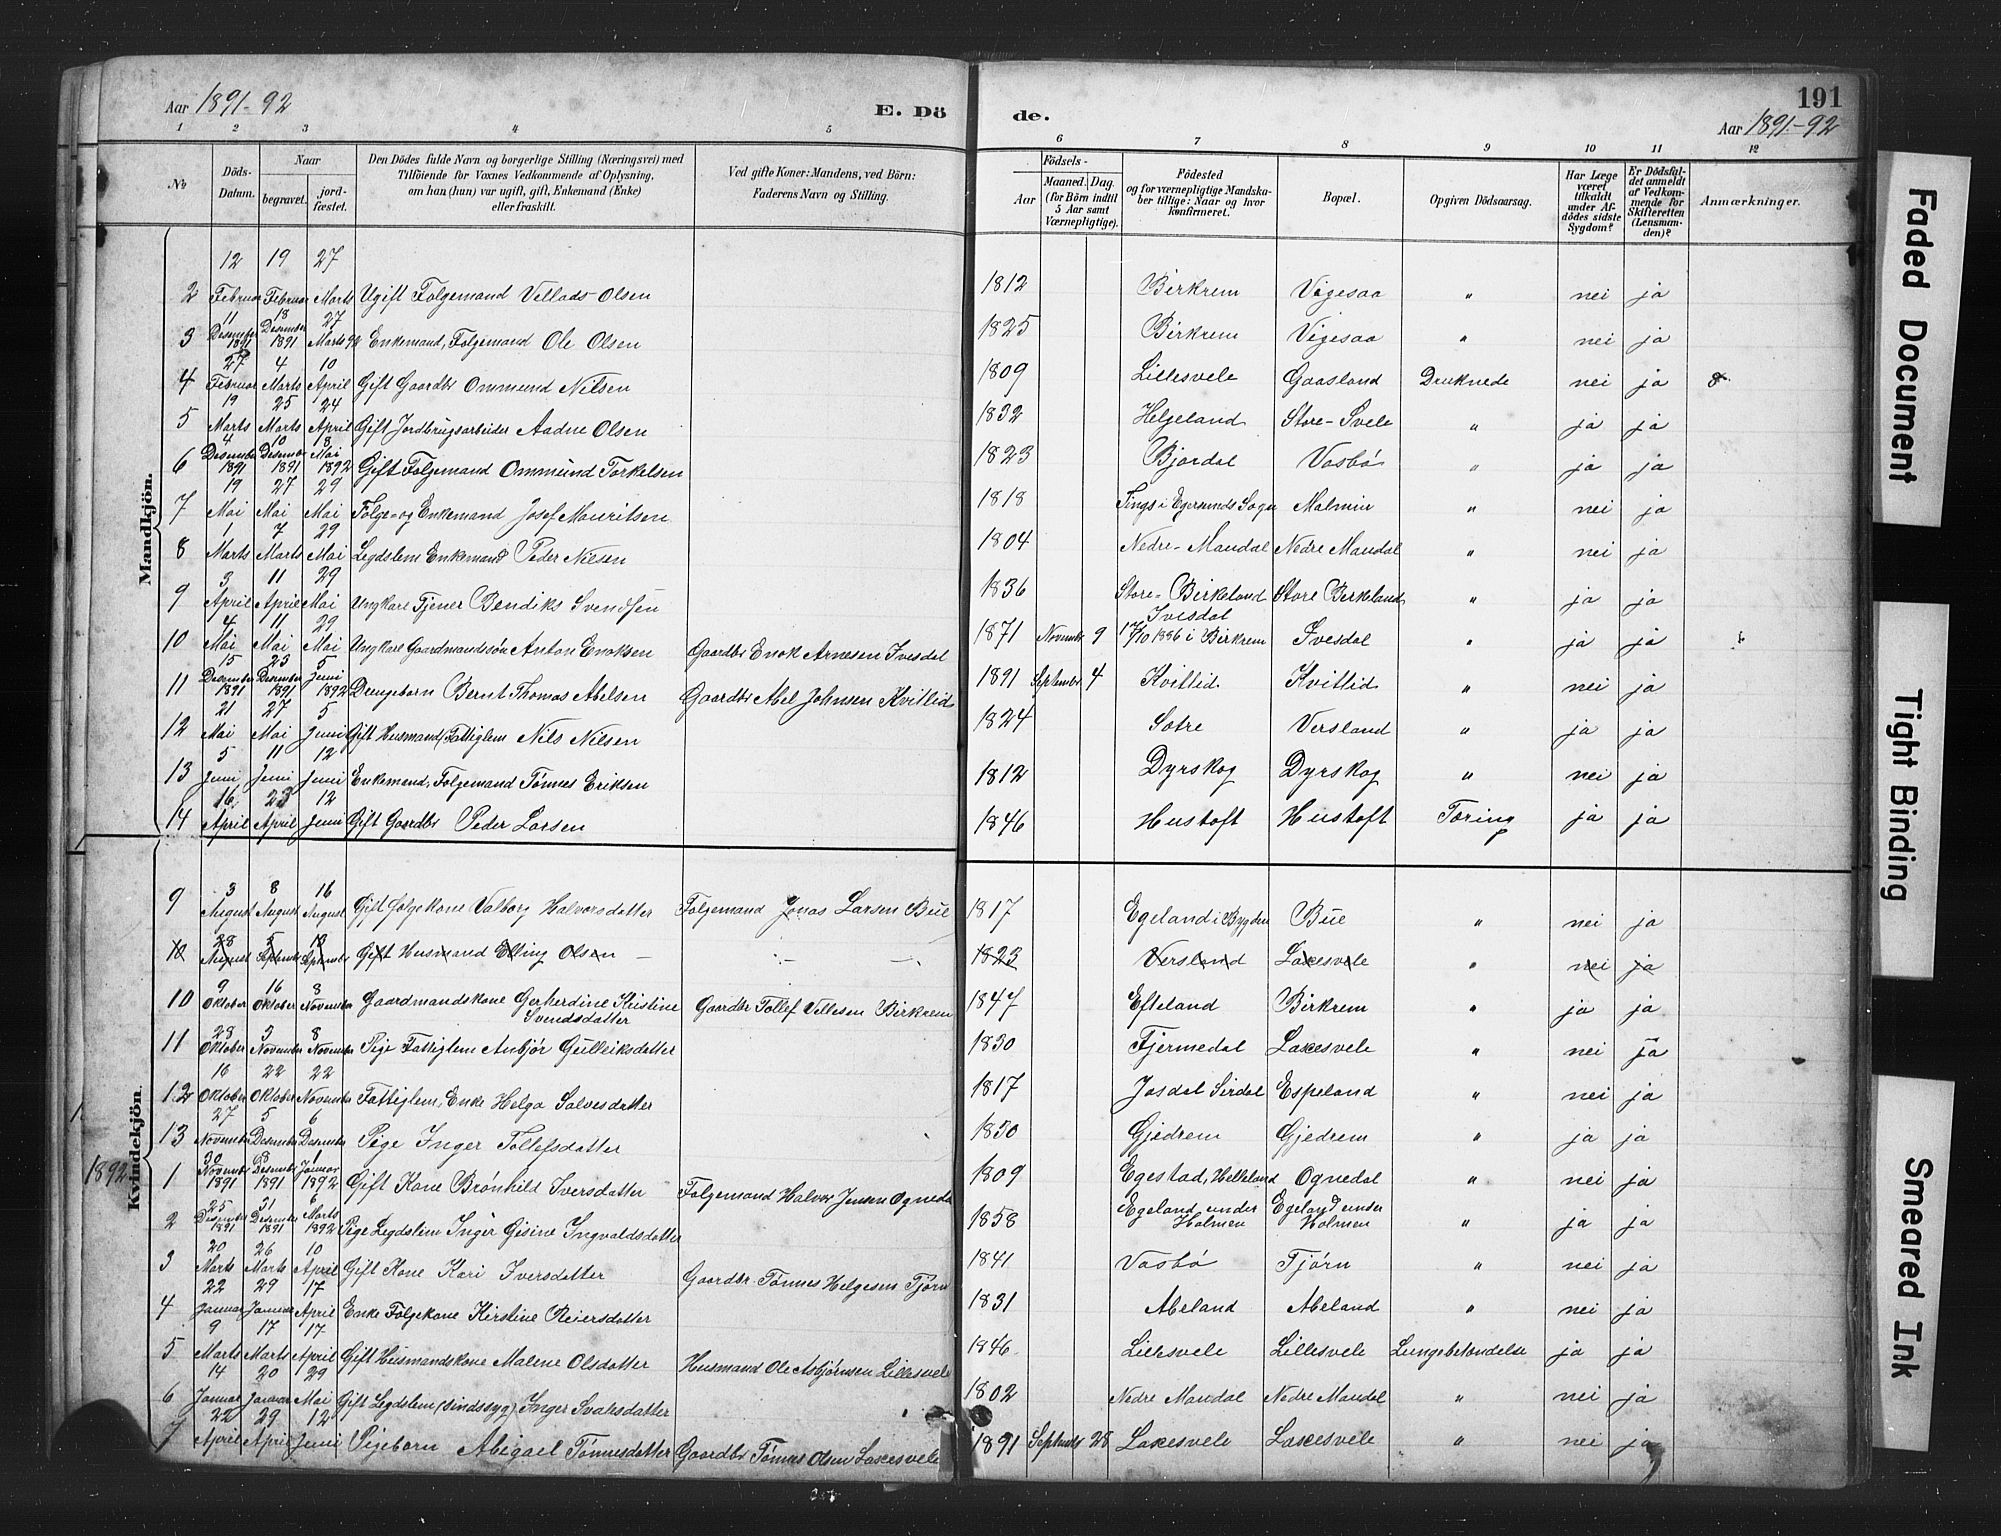 Aar 1891-92
E. Dö
de.
191
Aar 1891-92
1 2 3 4 5 6 7 8 9 10 11 12
No
Döds-Datum.
Naar
begravet.
jord-fæstet.
Den Dödes fulde Navn og borgerlige Stilling (Næringsvei) med
Tilföiende for Voxnes Vedkommende af Oplysning,
om han (hun) var ugift, gift, Enkemand (Enke)
eller fraskilt.
Ved gifte Koner: Mandens, ved Börn:
Faderens Navn og Stilling.
Födsels-
Aar
Maaned. Dag.
(for Börn indtil
5 Aar samt
Værnepligtige).
Födested
og for værnepligtige Mandska-
ber tillige: Naar og hvor
konfirmeret.
Bopæl.
Opgiven Dödsaarsag.
Har Læge
været
tilkaldt
under Af-
dödes sidste
Sygdom?
Er Dödsfal-
det anmeldt
af Vedkom-
mende for
Skifteretten
(Lensman-
den)?
Anmærkninger.
Mandkjön.
2 12 Februar 19 Februar 27 Marts Ugift Folgemand Vellads Olsen 1812 Birkrem Vigesaa " nei ja
3 11 Desember 1891 18 Desember 1891 27 Marts 92 Enkemand, Folgemand Ole Olsen 1825 Birkrem Vigesaa " nei ja
4 27 Februar 4 Marts 10 April Gift Gaardbr Ommund Nilsen 1809 Lillesvele Gaasland Druknede nei ja
5 19 Marts 25 Marts 24 April Gift Jordbrugsarbeider Aadne Olsen 1832 Helgeland Store-Svele " ja ja
6 4 Desember 1891 10 Desember 1891 8 Mai 1892 Gift Folgemand Ommund Torkelsen 1823 Bjordal Vasbø " ja ja
7 19 Mai 27 Mai 29 Mai Folge- og Enkemand Josef Mauritsen 1818 Tings i Egersunds Sogn Malmin " nei ja
8 1 Marts 7 Marts 29 Mai Legdslem Enkemand Peder Nilsen 1804 Nedre-Maudal Nedre Maudal " nei ja
9 3 April 11 April 29 Mai Ungkare Tjener Bendiks Svendsen 1836 Store-Birkeland Store Birkeland " ja ja
10 4 Mai 11 Mai 29 Mai Ungkare Gaardmandssøn Anton Enoksen Gaardbr Enok Arnesen Ivesdal 1871 November 9 Ivesdal 17/10 1886 i Birkrem Ivesdal " ja ja
11 15 Desember 1891 23 Desember 1891 5 Juni 1892 Drengebarn Bernt Thomas Abelsen Gaardbr Abel Johnsen Kvitlid 1891 September 4 Kvitlid Kvitlid " nei ja
12 21 Mai 27 Mai 5 Juni Gift Husmand, Fattiglem Nils Nilsen 1824 Sotre Versland " ja ja
13 5 Juni 11 Juni 12 Juni Enkemand, Folgemand Tønnes Eriksen 1812 Dyrskog Dyrskog " nei ja
14 16 April 23 April 12 Juni Gift Gaardbr Peder Larsen 1846 Hustoft Hustoft Tæring ja ja
Kvindekjön.
9 3 August 8 August 16 August Gift folgekone Valborg Halvorsdatter Folgemand Jonas Larsen Bue 1817 Egeland i Bygden Bue " nei ja
10 28 August 5 September 13 September Gift Husmand Elling Olsen 1823 Versland Laxesvele " nei ja
10 9 Oktober 16 Oktober 8 November Gaardmandskone Gerherdine Kristine Svendsdatter Gaardbr Tollef Vellesen Birkrem 1847 Efteland Birkrem " ja ja
11 23 Oktober 3 November 8 November Pige Fattiglem Anbjør Gulleiksdatter 1830 Fjermedal Laxesvele " nei ja
12 16 Oktober 22 Oktober 22 November Fattiglem, Enke Helga Salvesdatter 1817 Josdal Sirdal Espeland " nei ja
13 27 November 5 Desember 6 Desember Pige Inger Tollefsdatter 1830 Gjedrem Gjedrem " ja ja
1892
1 30 November 1891 8 Desember 1891 1 Januar 1892 Gift Kone Brønhild Iversdatter Folgemand Halvor Jensen Ognedal 1809 Egestad, Helleland Ognedal " nei ja
2 25 Desember 1891 31 Desember 1891 6 Marts 1892 Pige Legdslem Inger Gisine Ingvaldsdatter 1858 Egeland under Holmen Egeland under Holmen " ja ja
3 20 Marts 26 Marts 10 April Gift Kone Kari Iversdatter Gaardbr. Tønnes Helgesen Tjørn 1841 Vasbø Tjørn " nei ja
4 22 Januar 29 Januar 17 April Enke Folgekone Kirstine Reiersdatter 1831 Abeland Abeland " nei ja
5 9 Marts 17 Marts 17 April Gift Husmandskone Malene Olsdatter Husmand Ole Asbjørnsen Lillesvele 1846 Lillesvele Lillesvele Lungebetændelse ja ja
6 14 Januar 20 Januar 29 Mai Gift Legdslem (sindssyg) Inger Svahsdatter 1802 Nedre Maudal Nedre Maudal " nei ja
7 22 April 29 April 12 Juni Pigebarn Abigael Tønnesdatter Gaardbr Tønnes Olsen Laxesvele 1891 September 28 Laxesvele Laxesvele " nei ja
Faded Document
Tight Binding
Smeared Ink